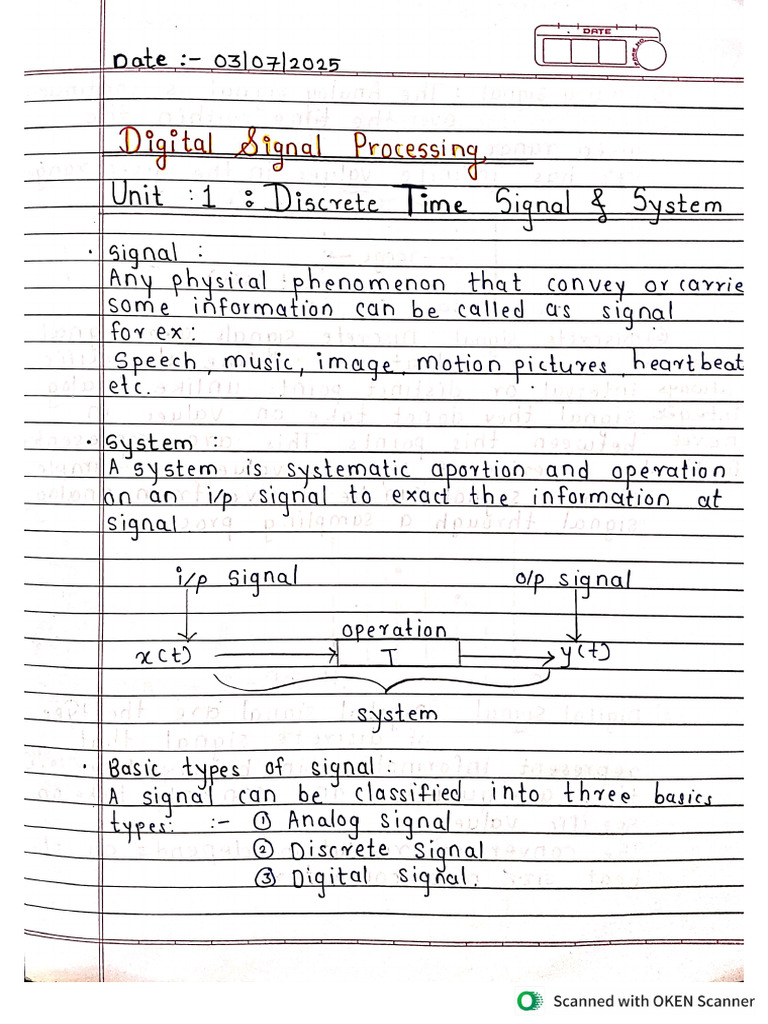 DATE
PAGE NO.
Date :- 03/07/2025
Digital Signal Processing
Unit : 1 : Discrete Time Signal & System
· signal :
Any physical phenomenon that convey or carrie
some information can be called as signal
for ex :
Speech, music, image, motion pictures, heartbeat
etc.
· System :
A system is systematic aportion and operation
on an i/p signal to exact the information at
signal
i/p signal o/p signal
operation
x(t) T y(t)
system
· Basic types of signal :
A signal can be classified into three basics
types: :- ① Analog signal
② Discrete signal
③ Digital signal.
Scanned with OKEN Scanner